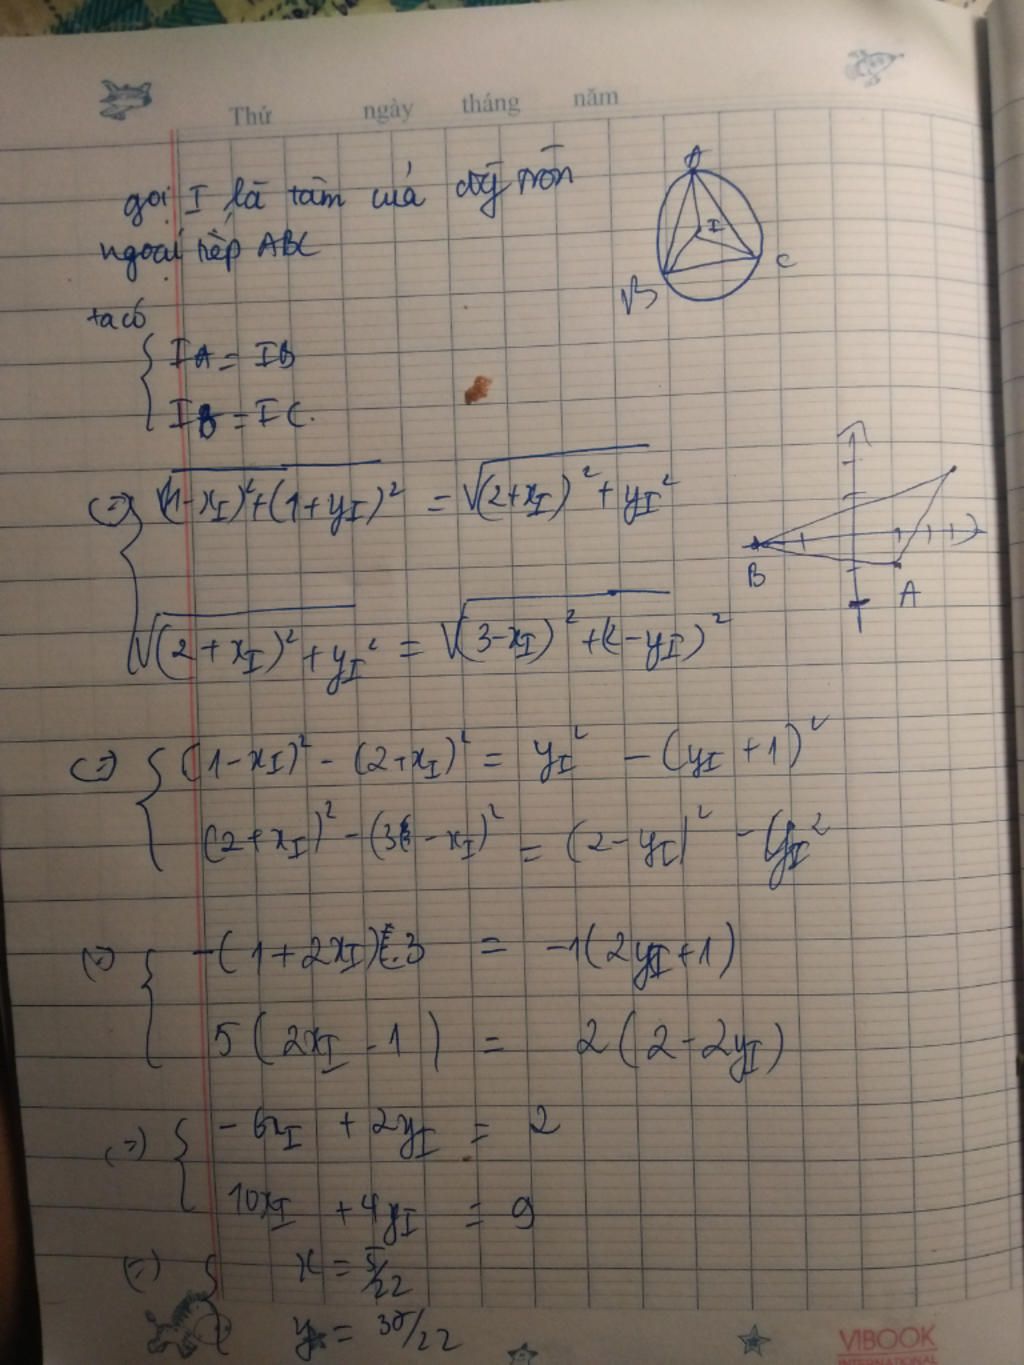 Thứ ngày tháng năm
gọi I là tâm của đg tròn
ngoại tiếp ABC
A
I
B
C
ta có
{ IA = IB
IB = IC.
(=) { √(1-x_I)² + (1+y_I)² = √(2+x_I)² + y_I²
√(2+x_I)² + y_I² = √(3-x_I)² + (2-y_I)²
B
A
(=) { (1-x_I)² - (2+x_I)² = y_I² - (y_I+1)²
(2+x_I)² - (3-x_I)² = (2-y_I)² - y_I²
(=) { -(1+2x_I).3 = -1(2y_I+1)
5(2x_I-1) = 2(2-2y_I)
(=) { -6x_I + 2y_I = 2
10x_I + 4y_I = 9
(=) { x = 5/22
y = 35/22
VIBOOK
INTERNATIONAL